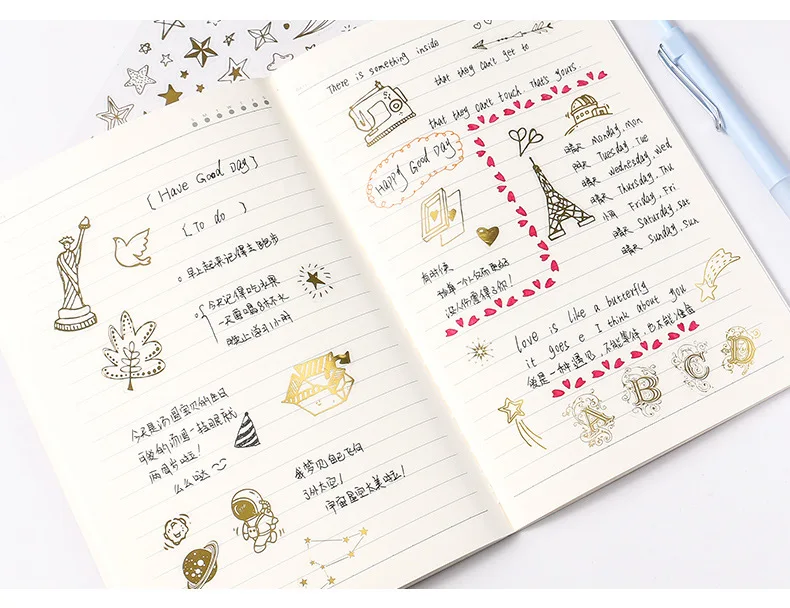 [Have Good Day]
[To do]
早上起来记得去跑步
今天记得吃水果
一天要喝8杯水
晚上学习1小时
今天是汤圆宝贝的生日
可爱的汤圆一转眼就
两周岁啦!
么么哒
我梦见自己飞向
了外太空!
宇宙星空太美啦!
There is something inside
that they can't get to
that they can't touch. That's yours.
Happy Good Day
晴天 Monday, Mon
阴天 Tuesday, Tue
晴天 Wednesday, Wed
晴天 Thursday, Thu
小雨 Friday, Fri
晴天 Saturday, Sat
晴天 Sunday, Sun
有时候
一个人
没人
love is like a butterfly
it goes e I think about you
是一种遇见,不能等待,也不能准备
A B C D